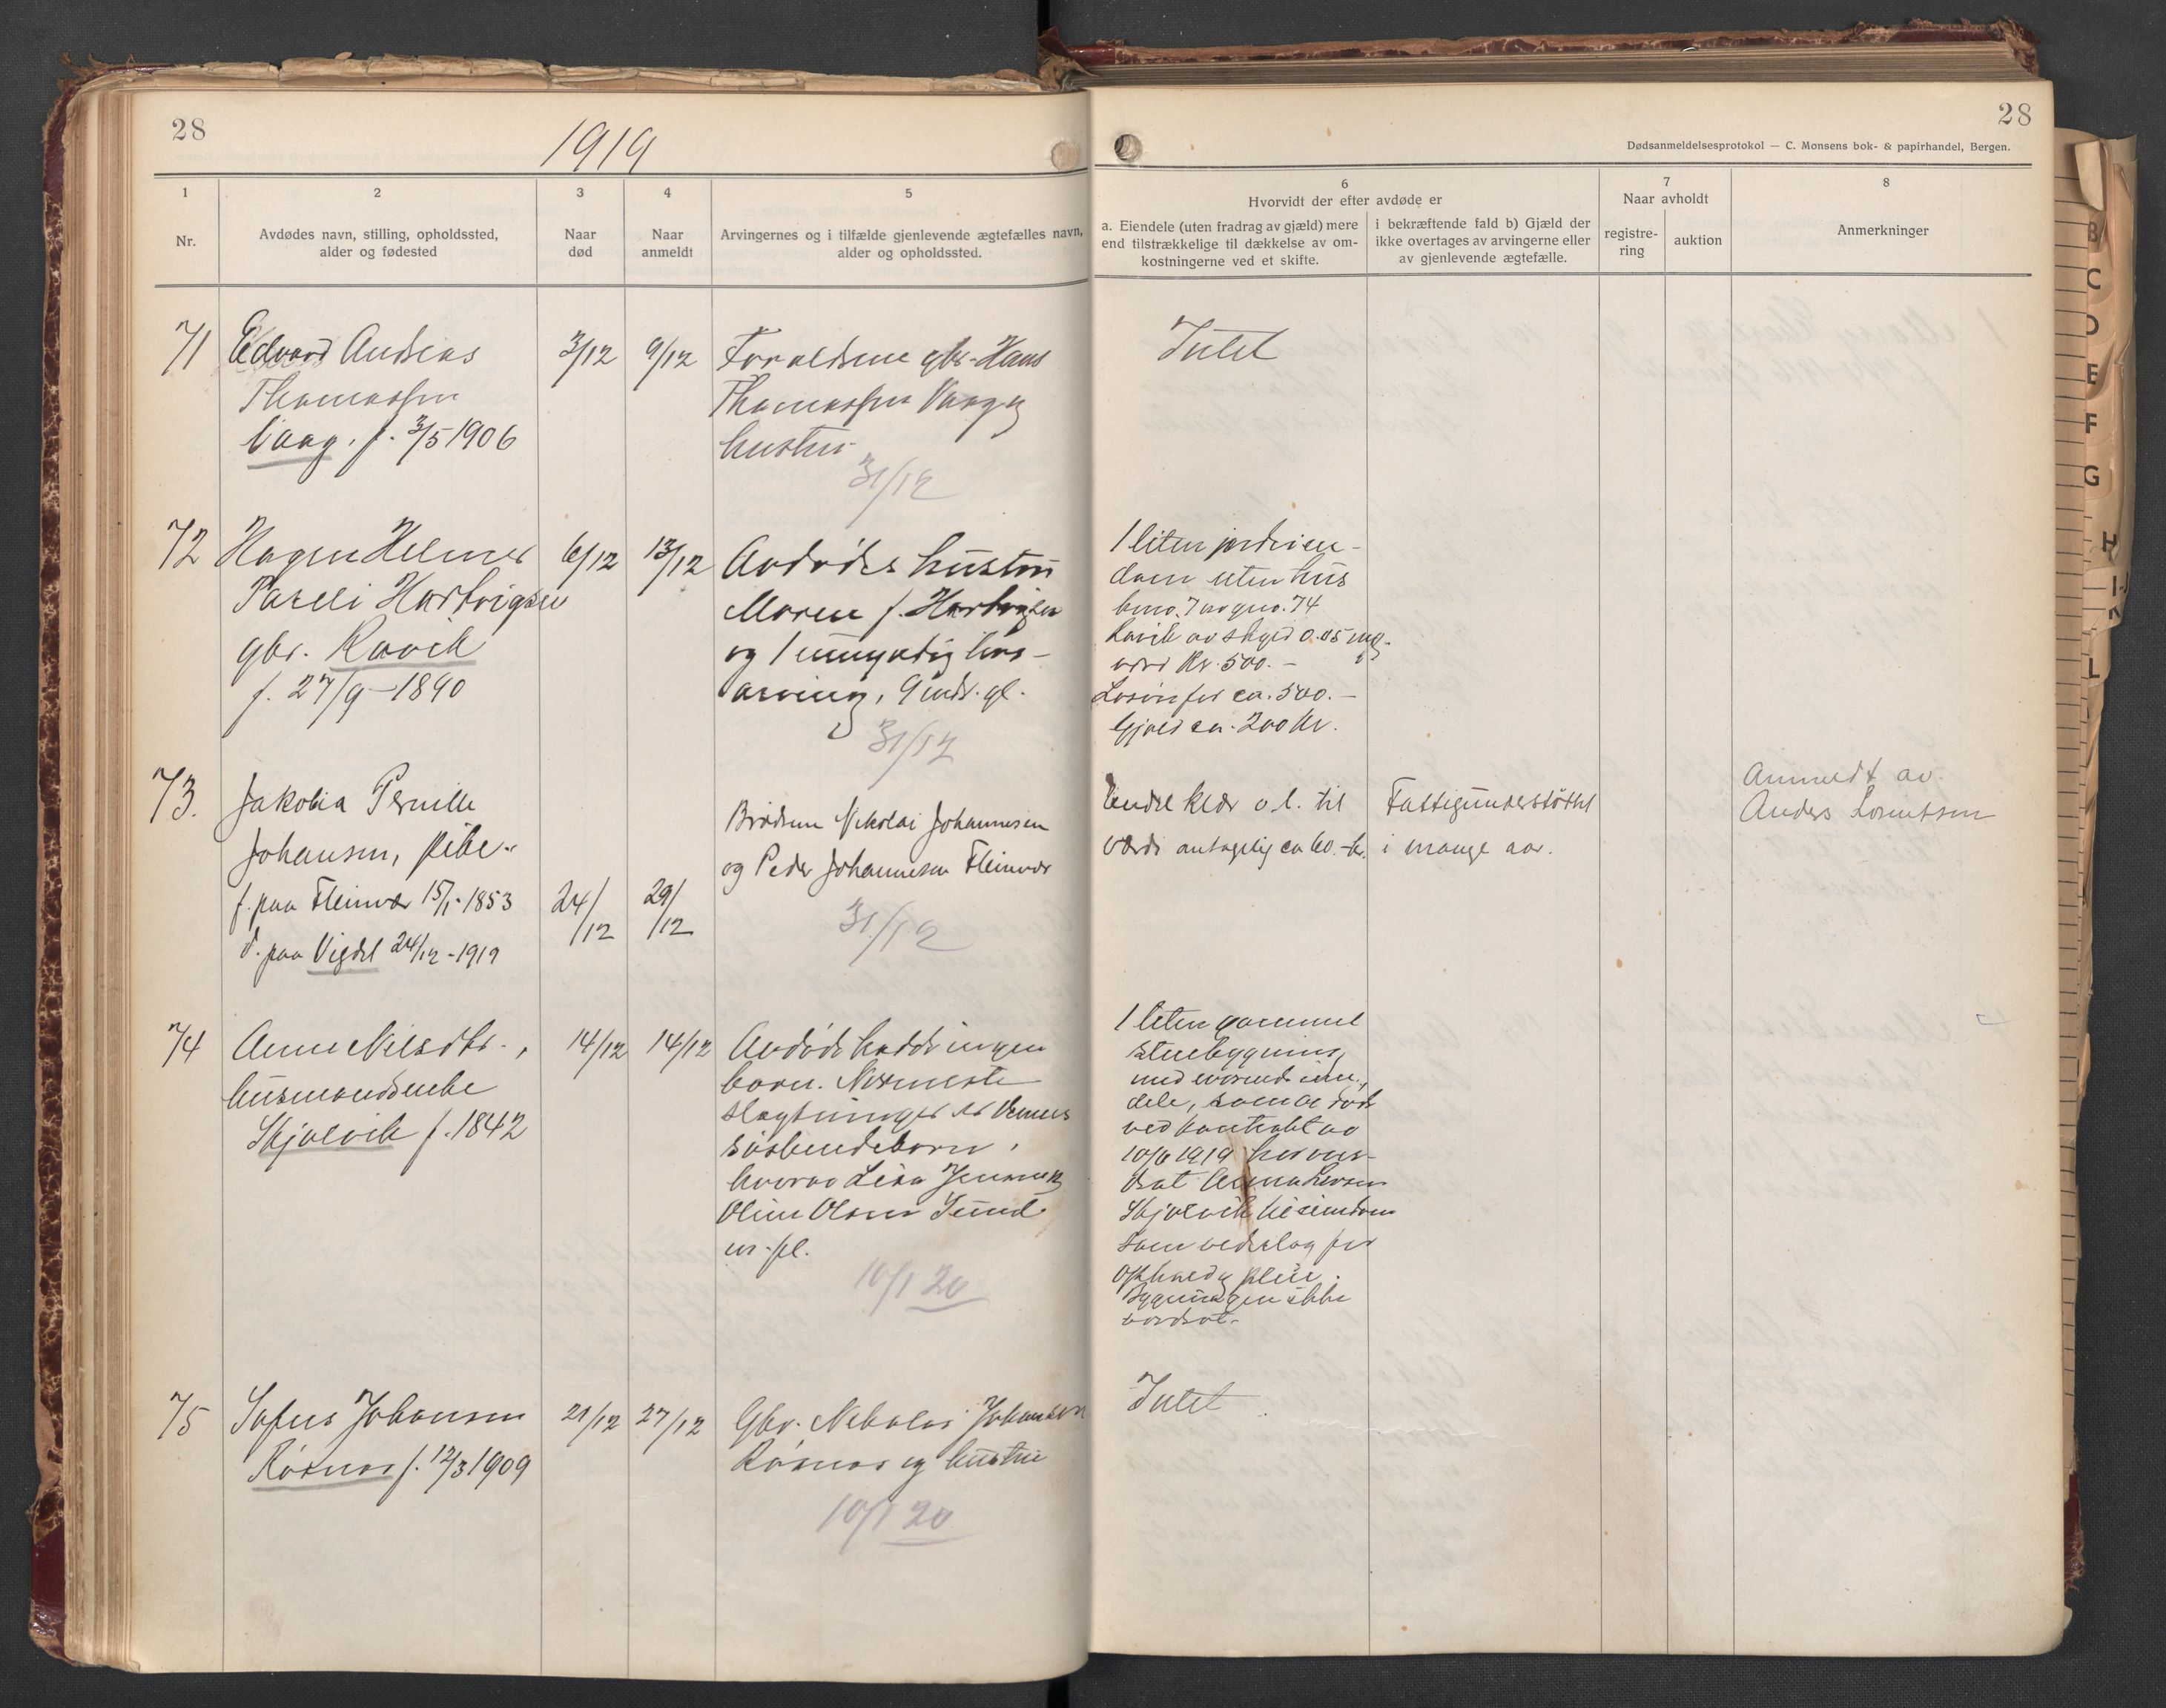 28
1919
28
Dødsanmeldelsesprotokol — C. Monsens bok- & papirhandel, Bergen.
1
2
3
4
5
6
7
8
Nr.
Avdødes navn, stilling, opholdssted,
alder og fødested
Naar
død
Naar
anmeldt
Arvingernes og i tilfælde gjenlevende ægtefælles navn,
alder og opholdssted.
Hvorvidt der efter avdøde er
a. Eiendele (uten fradrag av gjæld) mere
end tilstrækkelige til dækkelse av om-
kostningerne ved et skifte.
i bekræftende fald b) Gjæld der
ikke overtages av arvingerne eller
av gjenlevende ægtefælle.
Naar avholdt
registre-
ring
auktion
Anmerkninger
71
Edvard Andreas
Thomassen
Vaag. f. 3/5 1906
3/12
9/12
Forældrene gbr. Hans
Thomassen Vaag og
hustru.
31/12
Intet
72
Hagen Helmer
Pareli Hartvigsen
gbr. Ravik
f. 27/9-1890
6/12
13/12
Avdødes hustru
Maren f. Hartvigsen
og 1 umyndig livs-
arving, 9 mdr. gl.
31/12
1 liten jordeien-
dom uten hus
bno. 7 av gno. 74
Ravik av skyld 0.05 mg.
værd Kr. 500.-
Løsøre for ca. 500.-
Gjæld ca. 200 Kr.
73.
Jakobia Pernille
Johansen, pike.
f. paa Fleinvær 15/1-1853
d. paa Vigdel 24/12-1919
24/12
29/12
Brødrene Nikolai Johannesen
og Peder Johannesen Fleinvær
31/12
Endel klær o.l. til
værdi antagelig ca 60.-kr.
Fattigunderstøttet
i mange aar.
Anmeldt av
Anders Lorentsen
74
Anne Nilsdtr.,
husmandsenke
Skjælvik f. 1842
14/12
14/12
Avdøde hadde ingen
barn. Nærmeste
slægtninger er hennes
søskendebarn,
hvorav Lisa Jensen og
Oline Olsen Sund
m. fl.
10/1 20
1 liten gammel
stuebygning
med værende inn-
dele, som av døde
ved kontrakt av
10/6 1919 har over-
drat Anna Larsen
Skjælvik til eiendom
som vederlag for
ophold og pleie.
Bygningen ikke
værdsat.
75
Sofus Johansen
Røsnes f. 12/3 1909
21/12
27/12
Gbr. Nikolai Johansen
Røsnes og hustru
10/1 20
Intet.
B
C
D
E
F
G
H
I-J
K
L